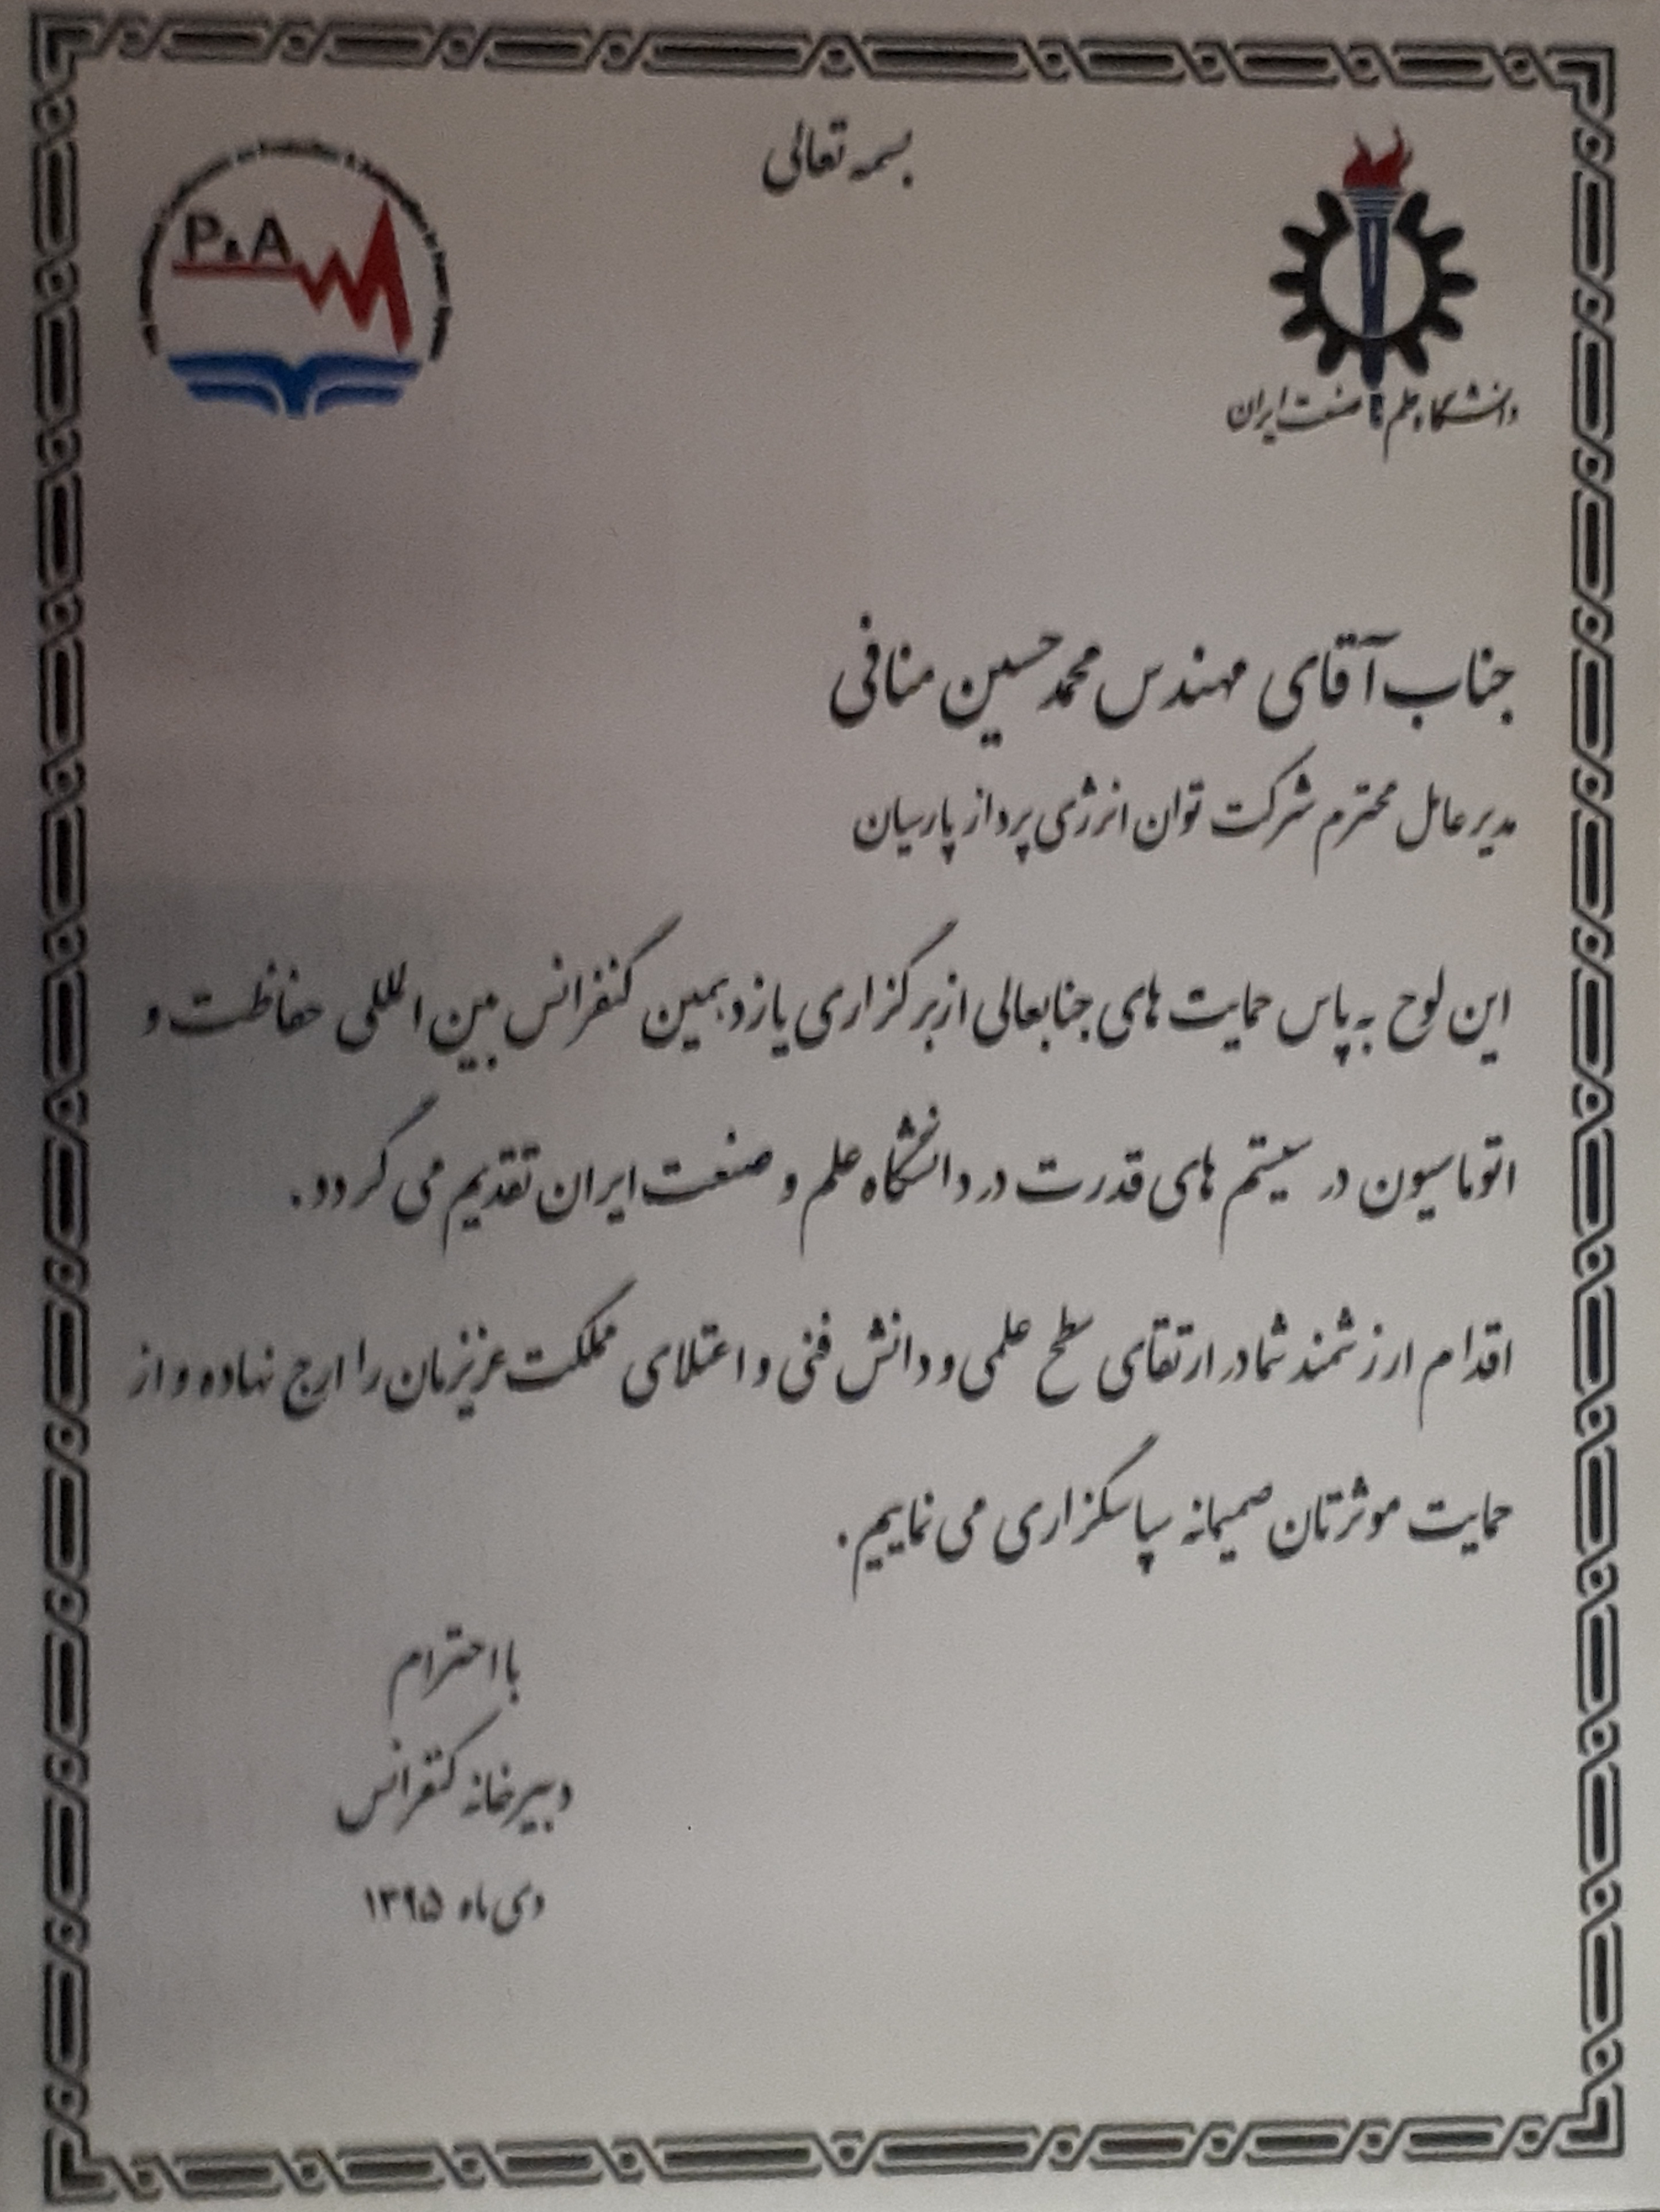 بسمه تعالی
P&A
دانشگاه علم و صنعت ایران
جناب آقای مهندس محمد حسین منافی
مدیر عامل محترم شرکت توان انرژی پرداز پارسیان
این لوح به پاس حمایت های جنابعالی از برگزاری یازدهمین کنفرانس بین المللی حفاظت و
اتوماسیون در سیستم های قدرت در دانشگاه علم و صنعت ایران تقدیم می گردد.
اقدام ارزشمند شما در ارتقای سطح علمی و دانش فنی و اعتلای مملکت عزیزمان را ارج نهاده و از
حمایت موثرتان صمیمانه سپاسگزاری می نماییم.
با احترام
دبیرخانه کنفرانس
دی ماه ۱۳۹۵